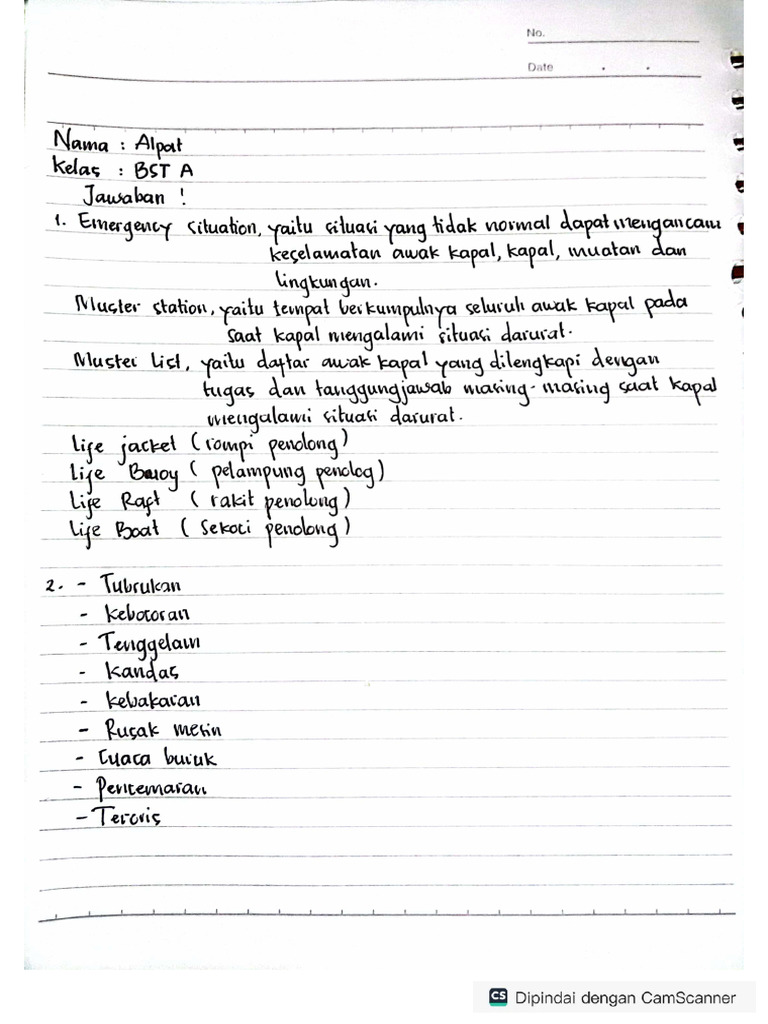 No.
Date
Nama : Alpat
Kelas : BST A
Jawaban !
1. Emergency situation, yaitu situasi yang tidak normal dapat mengancam
keselamatan awak kapal, kapal, muatan dan
lingkungan.
Muster station, yaitu tempat berkumpulnya seluruh awak kapal pada
saat kapal mengalami situasi darurat.
Muster List, yaitu daftar awak kapal yang dilengkapi dengan
tugas dan tanggungjawab masing-masing saat kapal
mengalami situasi darurat.
Life jacket (rompi penolong)
Life Buoy (pelampung penolog)
Life Raft (rakit penolong)
Life Boat (Sekoci penolong)
2. - Tubrukan
- Kebocoran
- Tenggelam
- Kandas
- Kebakaran
- Rusak mesin
- Cuaca buruk
- Pencemaran
- Teroris
CS Dipindai dengan CamScanner